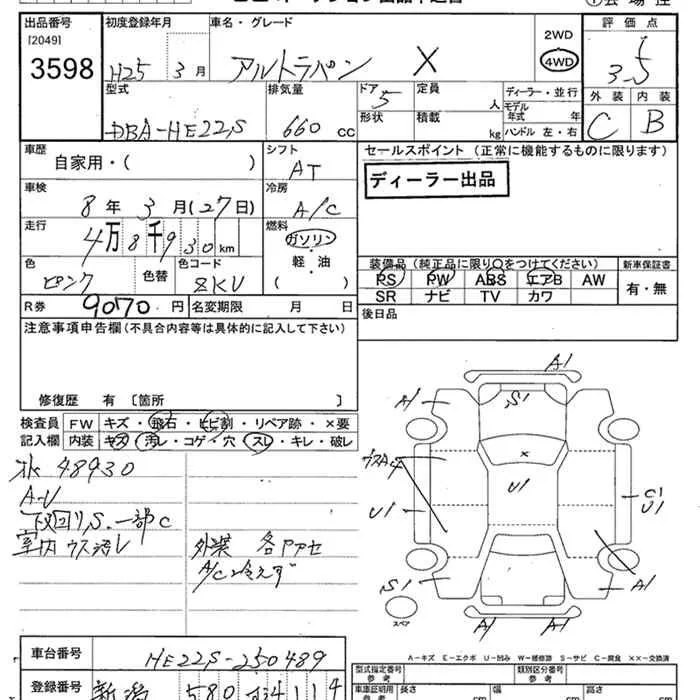 出品番号
[2049]
3598
初度登録年月
H25 3月
車名・グレード
アルトラパン X
2WD
4WD
評価点
3.5
外装 内装
C B
型式
DBA-HE22S
排気量
660 cc
ドア 5
形状
定員 人
積載 kg
ディーラー・並行
モデル年式 年
ハンドル 左・右
車歴
自家用・( )
シフト
AT
セールスポイント (正常に機能するものに限ります)
ディーラー出品
車検
8年 3月(27日)
冷房
A/C
走行
4万8千930km
燃料
ガソリン
軽・油
( )
色
ピンク
色替
色コード
ZKV
装備品(純正品に限り○をつけてください)
新車保証書
PS PW ABS エアB AW
SR ナビ TV カワ
有・無
R券 9070円
名変期限 月 日
後日品
注意事項申告欄(不具合内容等は具体的に記入して下さい)
修復歴 有〔箇所 〕
検査員記入欄
FW キズ・飛石・ヒビ割・リペア跡・×要
内装 キズ・汚レ・コゲ・穴・スレ・キレ・破レ
48930
下回りS.一部C
室内ウス汚レ
外装 各
A/C冷えず
A1
A1
S1
×
U1
U1
C1
U1
S1
A1
A1
A1
スペア
A-キズ E-エクボ U-凹み W-補修跡 S-サビ C-腐食 ××-交換済
車台番号
HE22S-250489
登録番号
新潟 580
型式指定番号
参考
類別区分番号
参考
車庫証明用
参考
長さ cm
幅 cm
高さ cm